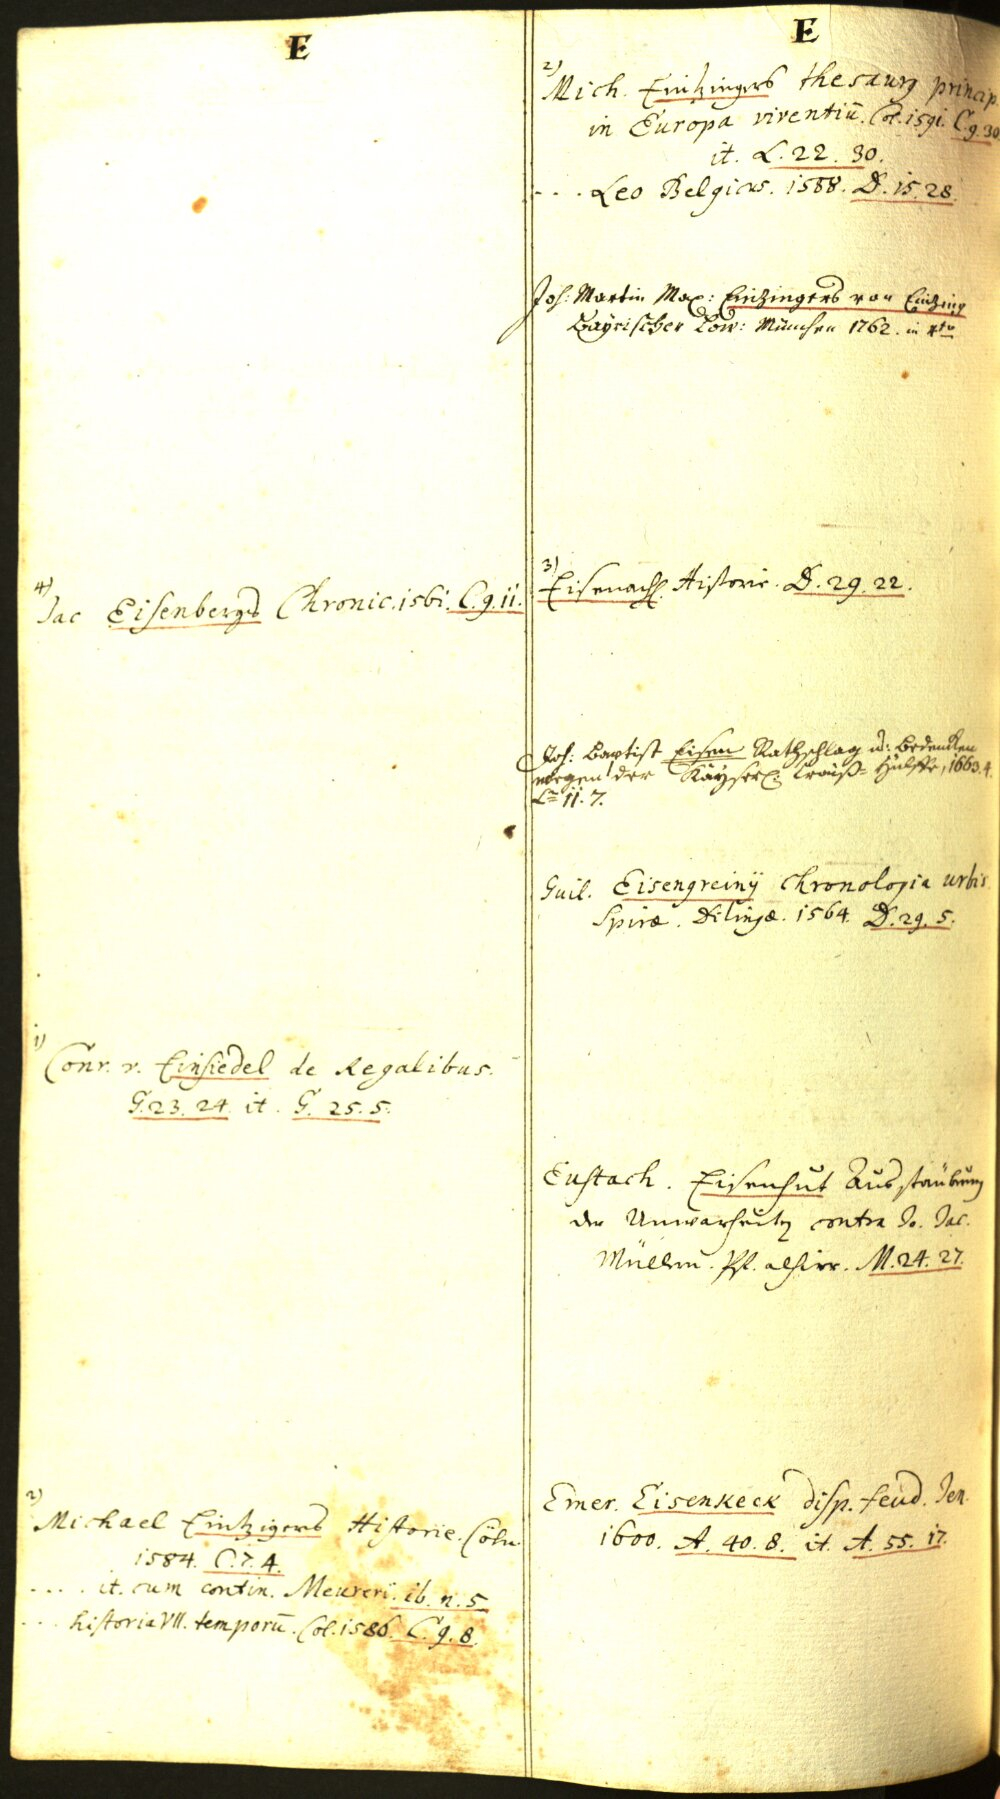 E
4)
Jac Eisenbergs Chronic. 1561. C. 9. 11.
1)
Conr. v. Einsiedel de Regalibus.
G. 23. 24. it. G. 25. 5.
2)
Michael Eintzigers Historie. Cöln
1584. C. 7. 4.
.... it. cum contin. Meureri. ib. n. 5
... historia VII. temporū. Col. 1586. C. 9. 8.
E
2)
Mich. Eintzingers thesaurꝯ princip.
in Europa viventiū. Col. 1591. C. 9. 30
it. L. 22. 30.
... Leo Belgicus. 1588. D. 15. 28.
Joh: Martin Max: Einzingers von Einzing
Bayrischer Löw: München 1762. in 4to
3)
Eisenach. Historie. D. 29. 22.
Joh: Baptist Eisen Rathschlag u: Bedencken
wegen der Kayserl: Hülffe, 1663. 4.
11. 7.
Guil. Eisengreinij Chronologia urbis
Spiræ. Dilingæ. 1564. D. 29. 5.
Eustach. Eisenhut Ausstäubung
der Unwarheiten contra Jo. Jac.
Müllern. alhier. M. 24. 27.
Emer. Eisenkeck disp. feud. Jen.
1600. A. 40. 8. it. A. 55. 17.